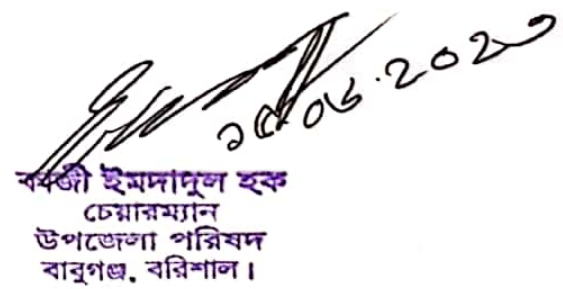 ১৫.০৬.২০২৩
কাজী ইমদাদুল হক
চেয়ারম্যান
উপজেলা পরিষদ
বাবুগঞ্জ, বরিশাল।